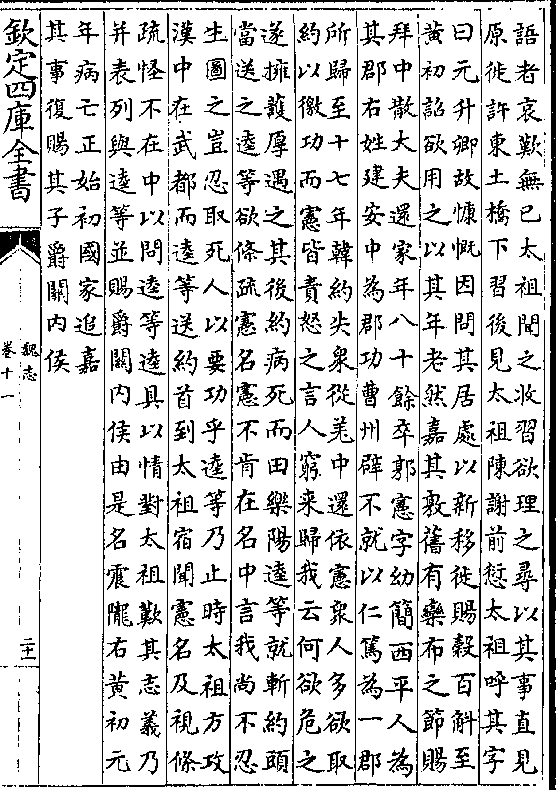 語者哀歎無已太祖聞之收習欲理之尋以其事直見
原徙許東土橋下習後見太祖陳謝前愆太祖呼其字
曰元升卿故慷慨因問其居處以新移徙賜穀百斛至
黃初詔欲用之以其年老然嘉其敦舊有欒布之節賜
拜中散大夫還家年八十餘卒郭憲字幼簡西平人為
其郡右姓建安中為郡功曹州辟不就以仁篤為一郡
所歸至十七年韓約失衆從羌中還依憲衆人多欲取
約以徼功而憲皆責怒之言人窮来歸我云何欲危之
遂擁護厚遇之其後約病死而田樂陽逵等就斬約頭
當送之逵等欲條疏憲名憲不肯在名中言我尚不忍
生圖之豈忍取死人以要功乎逵等乃止時太祖方攻
漢中在武都而逵等送約首到太祖宿聞憲名及視條
疏怪不在中以問逵等逵具以情對太祖歎其志義乃
并表列與逵等並賜爵關内侯由是名震隴右黄初元
年病亡正始初國家追嘉
其事復賜其子爵關内侯
欽定四庫全書
魏志
卷十一
二十一